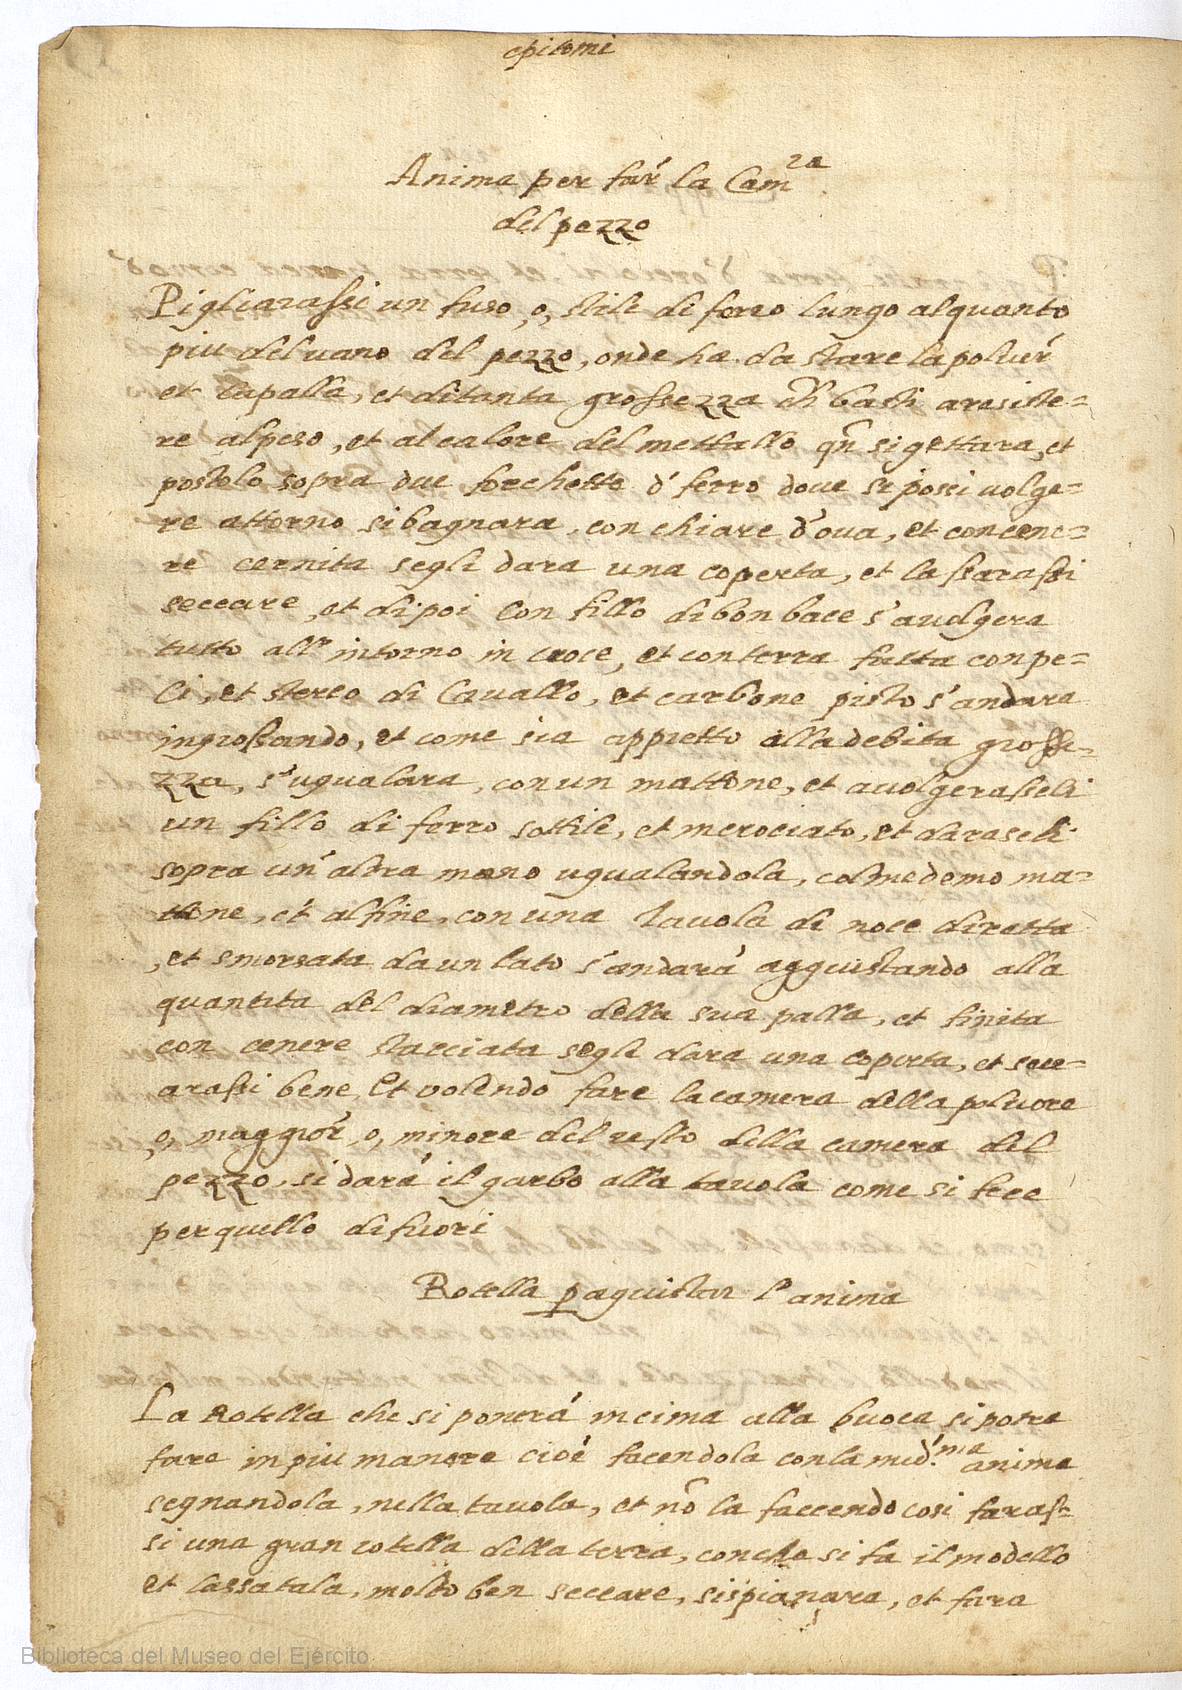 epitomi
Anima per far' la Cam.ra
del pezzo
Pigliarassi un fuso, o, stile di ferro lungo alquanto
piu del uano del pezzo, onde ha da stare la poluer'
et la palla, et di tanta grossezza ch basti a resiste=
re al peso, et al calore del mettallo qn si gettara, et
postolo sopra due forchette d' ferro doue si possi uolge=
re attorno si bagnara, con chiare d'oua, et con cene=
re cernita segli dara una coperta, et lassarassi
seccare, et di poi con fillo di bonbace s'auolgera
tutto all'intorno in croce, et con terra fatta con pe=
li, et sterco di Cauallo, et carbone pisto s'andara
ingrossando, et come sia appretto alla debita grosse=
zza, s'ugualara, con un mattone, et auolgerasseli
un fillo di ferro sottile, et incrociato, et daraseli
sopra un'altra mano ugualandola, col medemo ma=
ttone, et alfine, con una tauola di noce diretta
, et smorsata da un lato s'andara' aggiustando alla
quantita del diametro della sua palla, et finita
con cenere stacciata segli dara una coperta, et sece=
arassi bene, Et volendo fare la camera della poluore
o, maggior', o, minore del resto della camera del
pezzo, si dara' il garbo alla tauola come si fece
per quello di fuori
Rotella p aguistar l'anima
La Rotella che si ponera' in cima alla buoca si potra
fare in piu manere cioe' facendola con la med.'ma anima
segnandola, nella tauola, et no la faccendo cosi faras=
si una gran rotella della terra, con che si fa il modello
et lassatala, molto ben seccare, si spianara, et fara
Biblioteca del Museo del Ejército